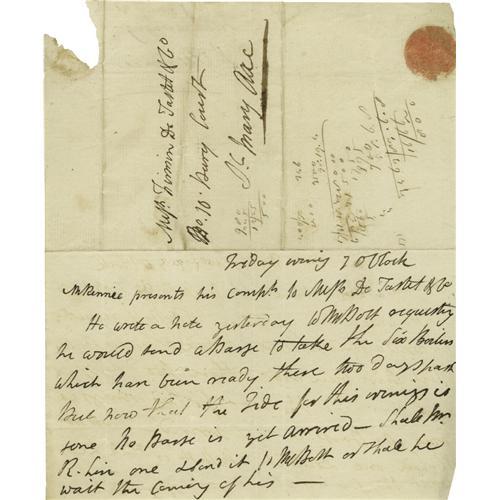 Messrs Firmin De Tastet & Co
No. 10. Bury Court
St. Mary Axe
Friday evening 7 O'Clock
Mr Rennie presents his complts to Messrs De Tastet & Co
He wrote a note yesterday to Mr Bolt requesting
he would send a Barge to take the Six Boilers
which have been ready these two days past
But now that the Tide for this evening is
gone No Barge is yet arrived — Shall Mr
R. hire one & send it to Mr Bolt or shall he
wait the coming of his —